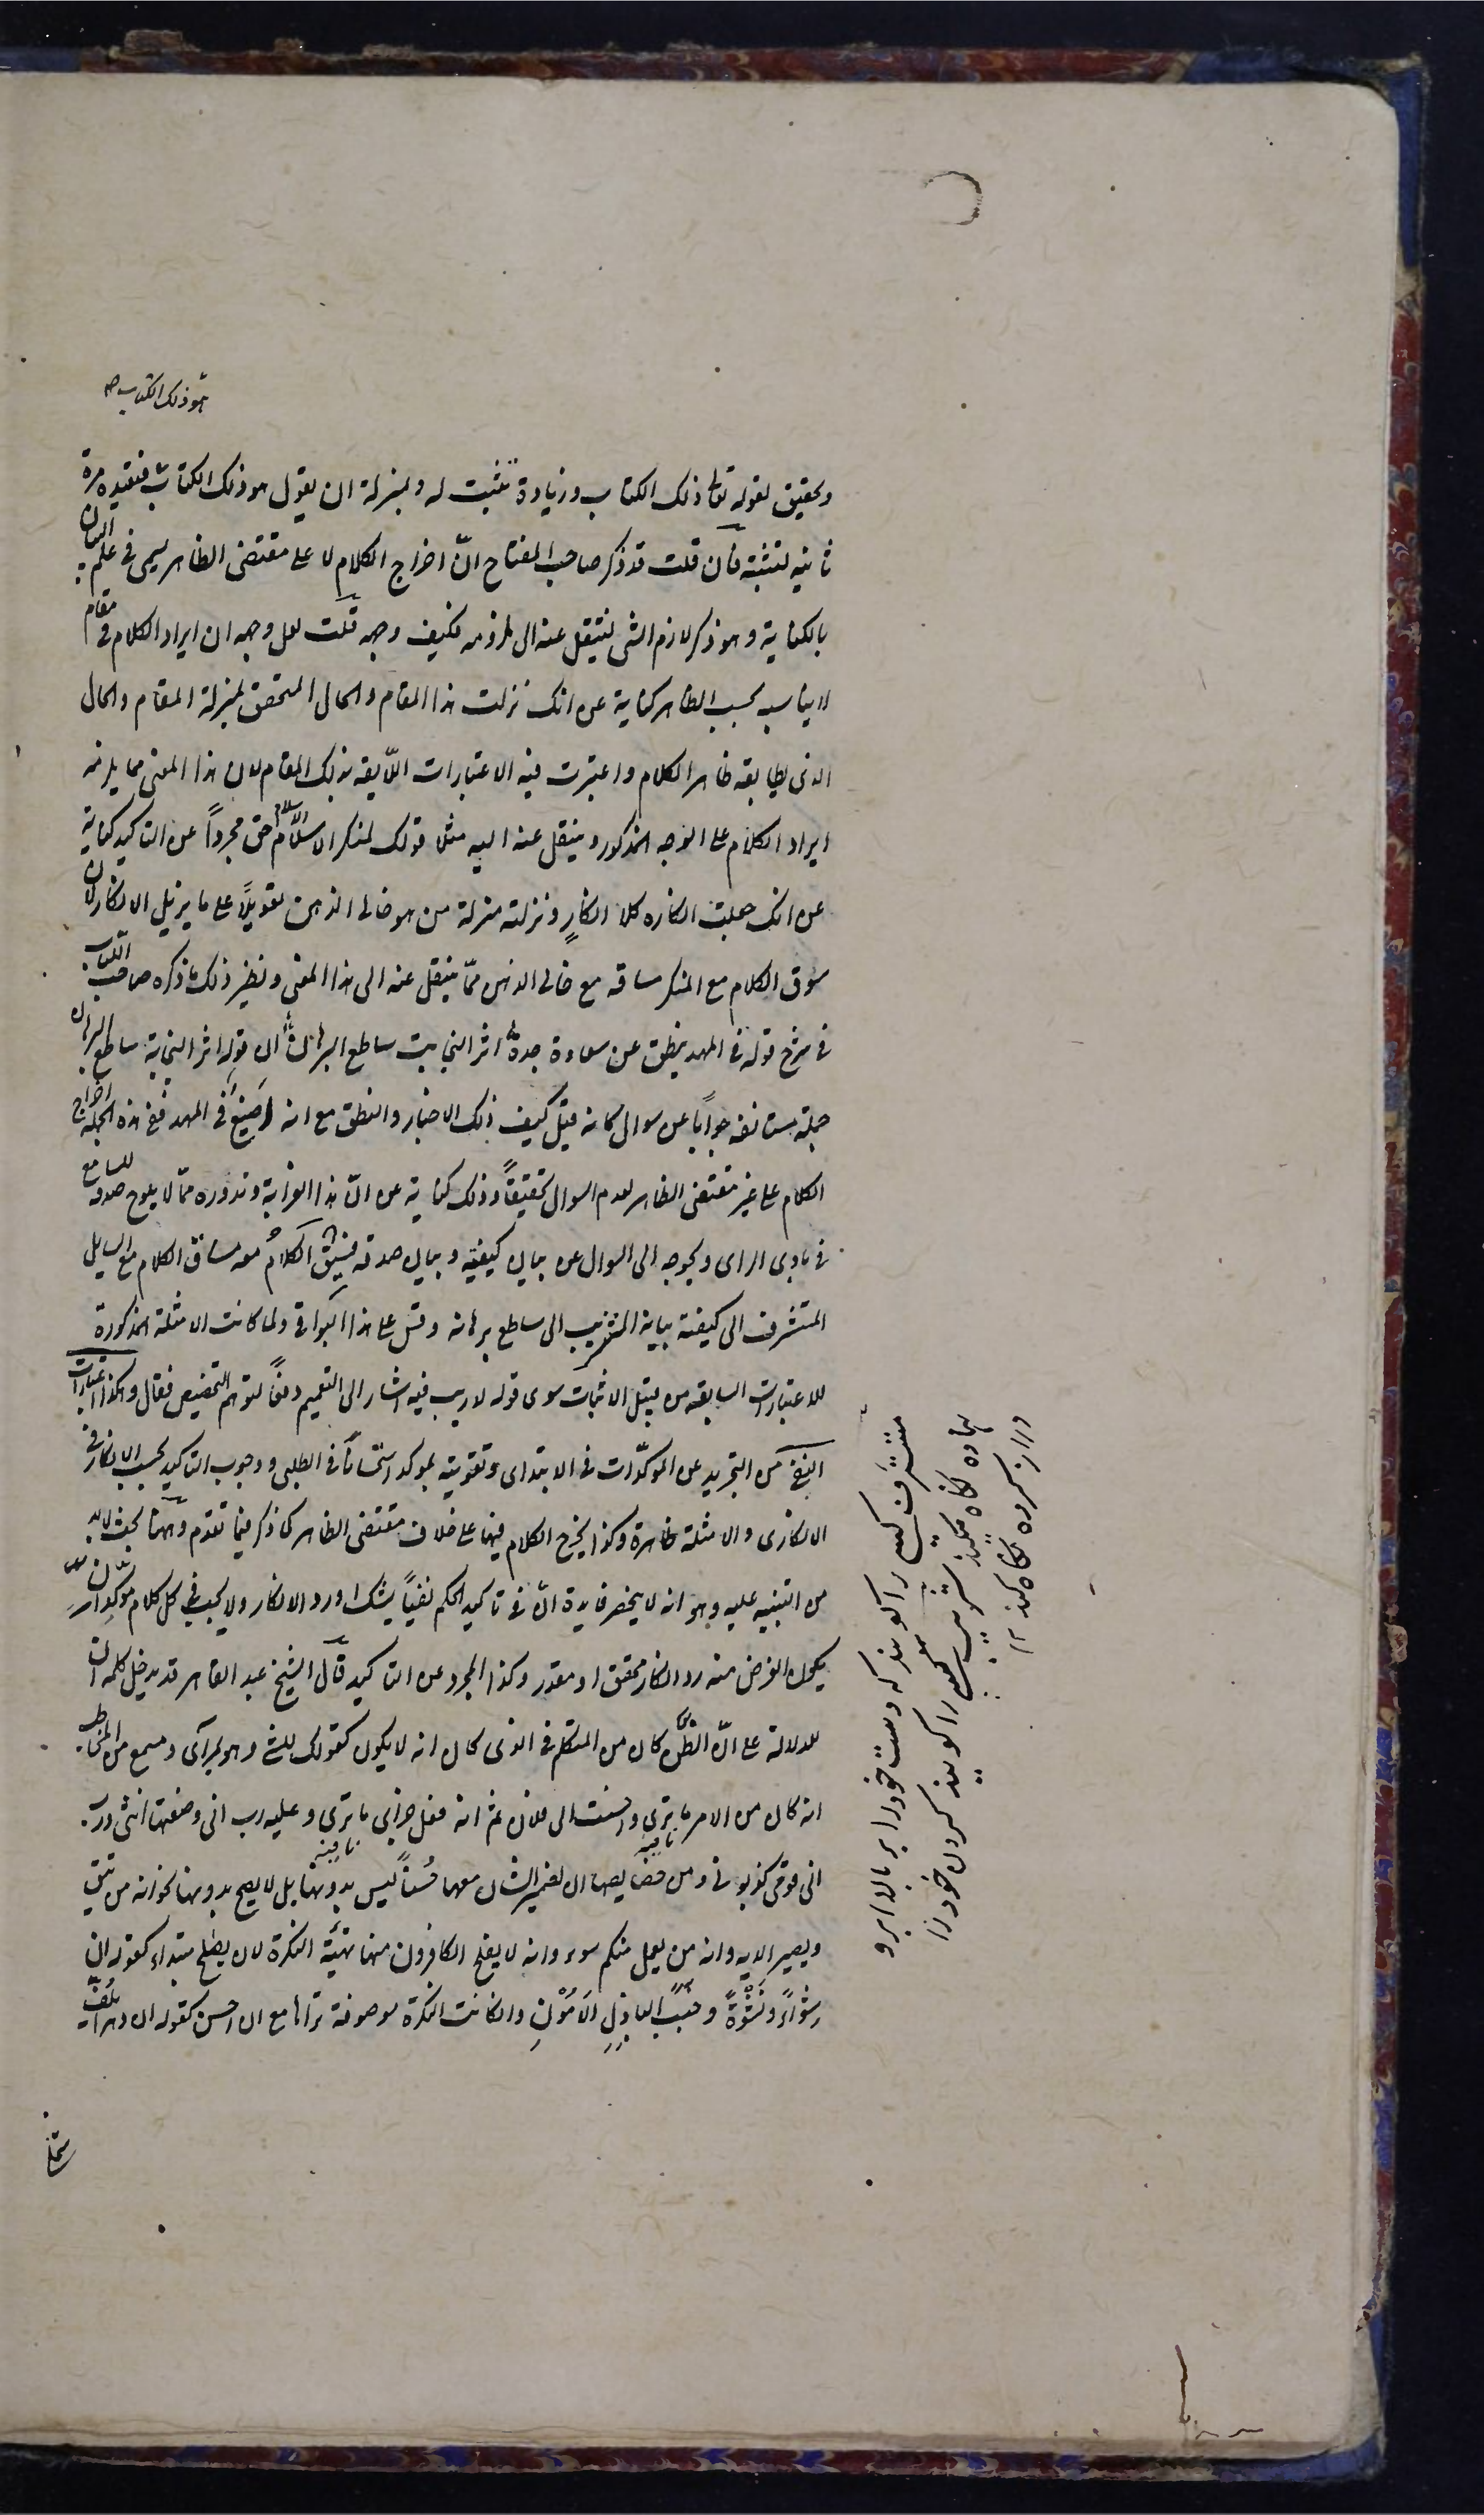 هو ذلك الكتاب صح
وتحقيق لقوله تعالى ذلك الكتاب وزيادة تثبيت له وبمنزلة ان يقول هو ذلك الكتاب فتعيده مرة
ثانيه لتثبته فان قلت قد ذكر صاحب المفتاح انّ اخراج الكلام لا على مقتضى الظاهر يسمى فى علم البيان
بالكناية وهو ذكر لازم الشى لينتقل عنه الى ملزومه فكيف وجهه قلت لعل وجهه ان ايراد الكلام فى مقام
لا يناسبه بحسب الظاهر كناية عن انك نزلت هذا المقام والحال المتحقق بمنزلة المقام والحال
الذى يطابقه ظاهر الكلام واعتبرت فيه الاعتبارات اللّايقه بذلك المقام لان هذا المعنى مما يلزمه
ايراد الكلام على الوجه المذكور وينتقل عنه اليه مثلا قولك لمنكر الاسلام الاسلام حق مجرداً عن التاكيد كناية
عن انك جعلت انكاره كلا انكارٍ ونزلته منزلة من هو خالى الذهن تعويلاً على ما يزيل الانكار لان
سوق الكلام مع المنكر مساقه مع خالى الذهن ممّا ينتقل عنه الى هذا المعنى ونظير ذلك ما ذكره صاحب الكتاب
فى شرح قوله فى المهد ينطق عن سعادة جدهّ اثر النجابت ساطع البرهان ان قوله اثر النجابة ساطع البرهان
جملة مستانفه جواباً عن سوال كانه قيل كيف ذلك الاخبار والنطق مع انه رضيعٌ فى المهد ففى هذه الجملة اخراج
الكلام على غير مقتضى الظاهر لعدم السوال تحقيقاً وذلك كناية عن انّ هذا لغرابته وندوره ممّا لا يلوح صدقه للسامع
فى بادى الراى ويحوجه الى السوال عن بيان كيفيته وبيان صدقه فسيق الكلامُ معه مساق الكلام مع السايل
المتشرف الى كيفية بيانه المشرئب الى ساطع برهانه وقس على هذا البواقى ولما كانت الامثلة المذكورة
للاعتبارات السابقه من قبيل الاثبات سوى قوله لا ريب فيه اشار الى التعميم دفعاً لتوهم التخصيص فقال وهكذا اعتبارات
النفى من التجريد عن الموكدّات فى الابتداى وتقويته بموكد استحساناً فى الطلبى ووجوب التاكيد بحسب الانكار فى
الانكارى والامثلة ظاهرة وكذا يخرج الكلام فيها على خلاف مقتضى الظاهر كما ذكر فيما تقدم وههنا بحث لا بد
من التنبيه عليه وهو انه لا ينحصر فايدة انّ فى تاكيد الحكم نفياً لشك او رد الانكار ولا يجب فى كل كلام موكد ان
يكون الغرض منه رد انكار محقق او مقدر وكذا المجرد عن التاكيد قال الشيخ عبد القاهر قد يدخل كلمه ان
للدلالة على انّ الظن كان من المتكلم فى الذى كان انه لا يكون كقولك للشى وهو بمرآى ومسمع من المخاطب
انه كان من الامر ما ترى واحسنت الى فلان ثم انه فعل جزاى ما ترى وعليه رب انى وضعتها انثى ورب
انى قومى كذبون ومن خصايصها ان لضمير الشان معها حُسناً ليس بدونها بل لا يصح بدونها نحو انه من يتق
ويصبر الايه وانه من يعمل منكم سوء وانه لا يفلح الكافرون منها تهيّئة النكرة لان يصلح مبتداء كقوله ان
شواءً ونَشْوَةً وخَبَبَ البازِلِ الأمُوْنِ وان كانت النكرة موصوفة تراها مع ان احسن كقوله ان دهرا يلُفّ
شملى
متشرف كسى را گويند كه دست خود را بر بالاء ابرو
نهاده نگاه ميكند مشرئب كسى را گويند گردن خود را
دراز كرده نگاه كند ١٢